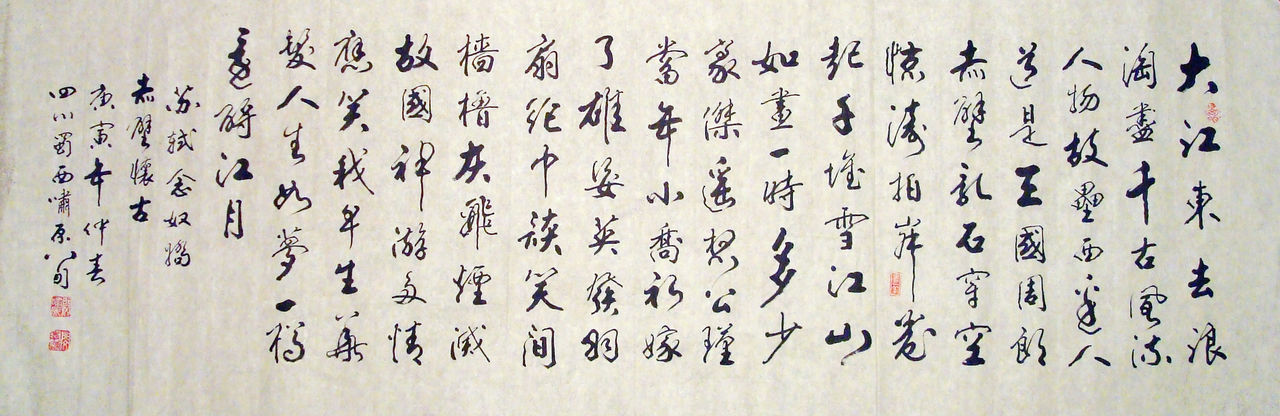 大江東去浪
淘盡千古風流
人物故壘西邊人
道是三國周郎
赤壁亂石穿空
惊濤拍岸卷
起千堆雪江山
如畫一時多少
豪傑遥想公瑾
當年小喬初嫁
了雄姿英發羽
扇綸巾談笑間
檣櫓灰飛煙滅
故國神游多情
應笑我早生華
髮人生如夢一樽
還酹江月
苏軾念奴嬌
赤壁懷古
庚寅年仲春
四川蜀西嘯原八旬